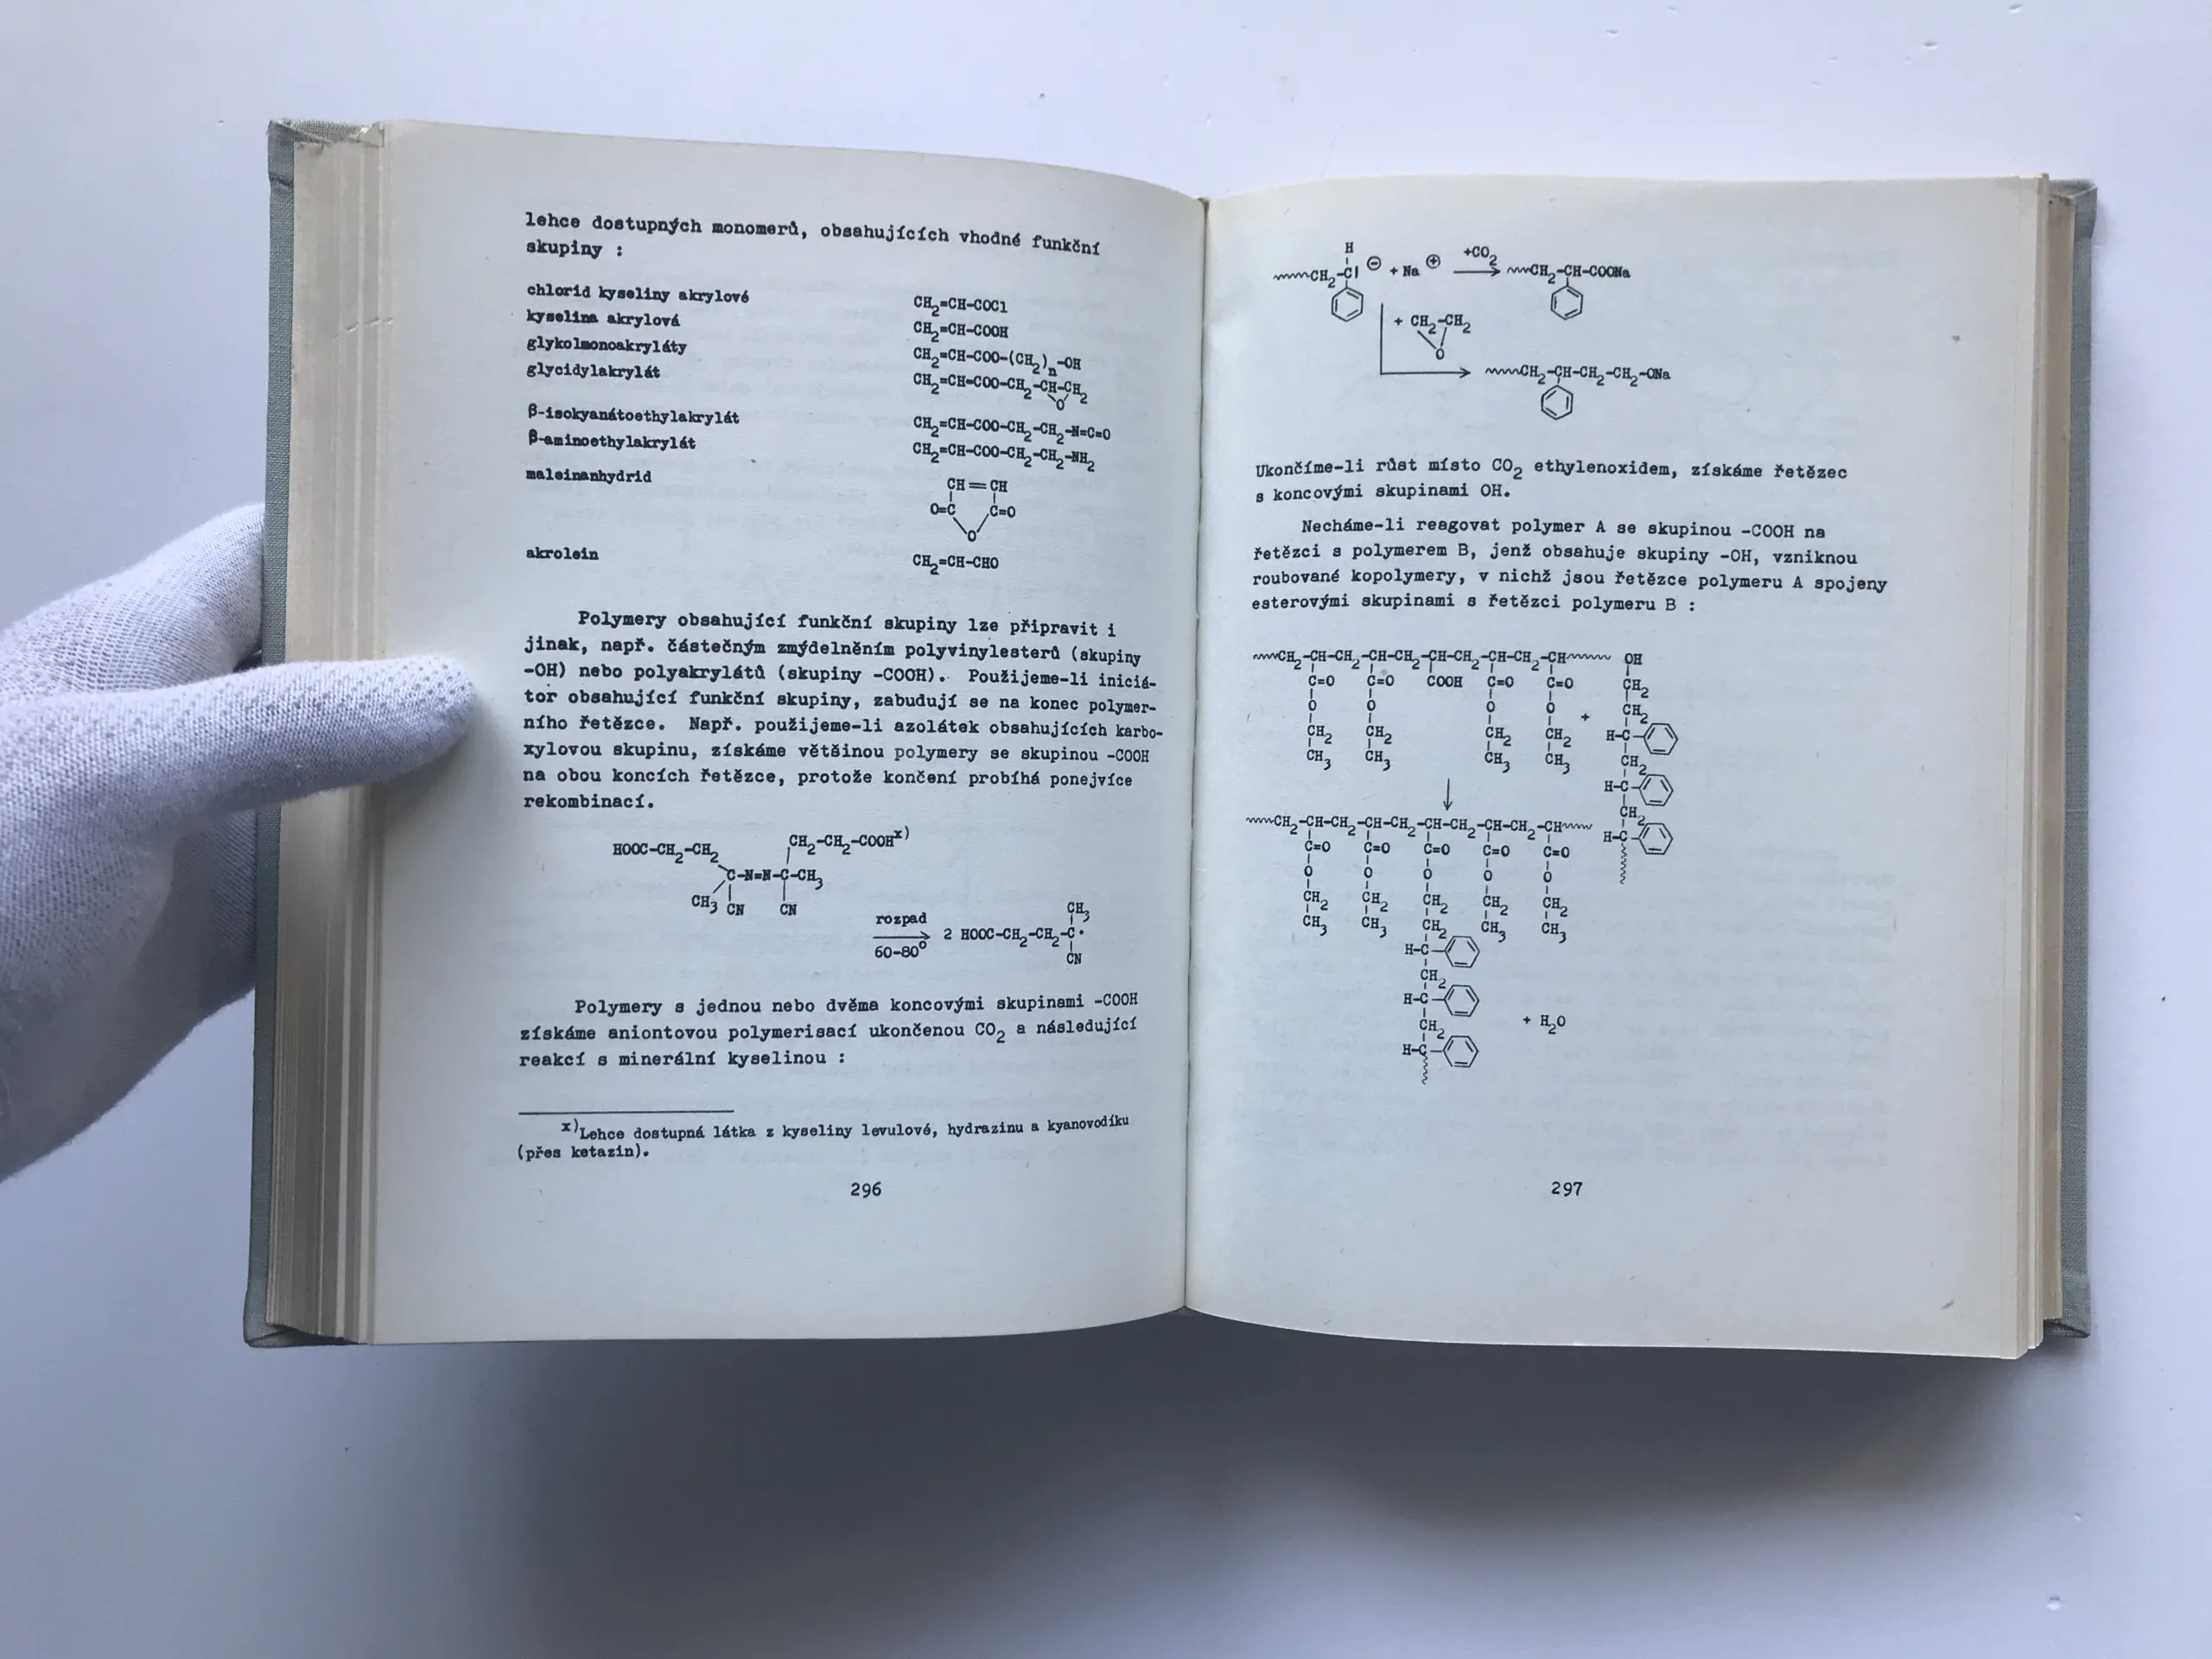 lehce dostupných monomerů, obsahujících vhodné funkční
skupiny :
chlorid kyseliny akrylové CH2=CH-COCl
kyselina akrylová CH2=CH-COOH
glykolmonoakryláty CH2=CH-COO-(CH2)n-OH
glycidylakrylát CH2=CH-COO-CH2-CH-CH2
O
β-isokyanátoethylakrylát CH2=CH-COO-CH2-CH2-N=C=O
β-aminoethylakrylát CH2=CH-COO-CH2-CH2-NH2
maleinanhydrid CH=CH
O=C C=O
O
akrolein CH2=CH-CHO
Polymery obsahující funkční skupiny lze připravit i
jinak, např. částečným zmýdelněním polyvinylesterů (skupiny
-OH) nebo polyakrylátů (skupiny -COOH). Použijeme-li iniciá-
tor obsahující funkční skupiny, zabudují se na konec polymer-
ního řetězce. Např. použijeme-li azolátek obsahujících karbo-
xylovou skupinu, získáme většinou polymery se skupinou -COOH
na obou koncích řetězce, protože končení probíhá ponejvíce
rekombinací.
HOOC-CH2-CH2 CH2-CH2-COOHx)
C-N=N-C-CH3
CH3 CN CN
rozpad
60-80° 2 HOOC-CH2-CH2-C•
CH3
CN
Polymery s jednou nebo dvěma koncovými skupinami -COOH
získáme aniontovou polymerisací ukončenou CO2 a následující
reakcí s minerální kyselinou :
x)Lehce dostupná látka z kyseliny levulové, hydrazinu a kyanovodíku
(přes ketazin).
296
H
CH2-C| ⊖ + Na ⊕ +CO2 CH2-CH-COONa
+ CH2-CH2
O
CH2-CH-CH2-CH2-ONa
Ukončíme-li růst místo CO2 ethylenoxidem, získáme řetězec
s koncovými skupinami OH.
Necháme-li reagovat polymer A se skupinou -COOH na
řetězci s polymerem B, jenž obsahuje skupiny -OH, vzniknou
roubované kopolymery, v nichž jsou řetězce polymeru A spojeny
esterovými skupinami s řetězci polymeru B :
CH2-CH-CH2-CH-CH2-CH-CH2-CH-CH2-CH OH
C=O C=O COOH C=O C=O CH2
O O O O + CH2
CH2 CH2 CH2 CH2 H-C
CH3 CH3 CH3 CH3 CH2
H-C
CH2
CH2-CH-CH2-CH-CH2-CH-CH2-CH-CH2-CH H-C
C=O C=O C=O C=O C=O
O O O O O
CH2 CH2 CH2 CH2 CH2
CH3 CH3 CH2 CH3 CH3
H-C
CH2
H-C
CH2 + H2O
H-C
297